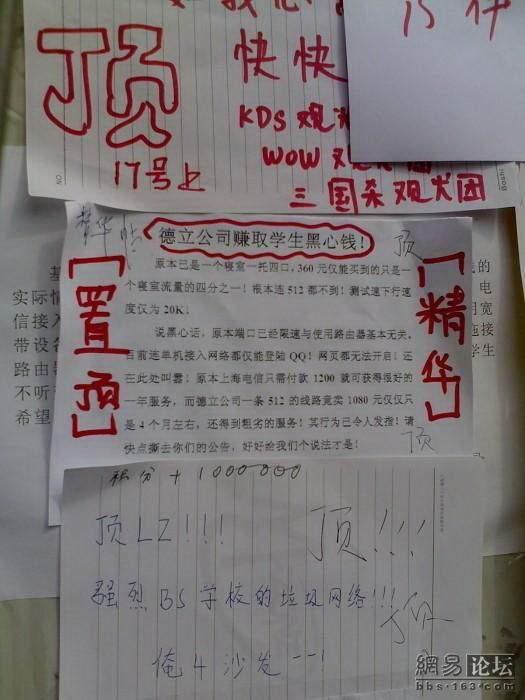 15
顶
快快
KDS观
17号上
WOW
三国杀观光团
精华帖
德立公司赚取学生黑心钱!
顶
[置顶]
[精华]
原本已是一个寝室一托四口,360元仅能买到的只是一
个寝室流量的四分之一!根本连512都不到!测试速下行速
度仅为20K!
说黑心话,原本端口已经限速与使用路由器基本无关。
目前连单机接入网络都仅能登陆QQ!网页都无法开启!还
在此处叫嚣!原本上海电信只需付款1200就可获得很好的
一年服务,而德立公司一条512的线路竟卖1080元仅仅只
是4个月左右,还得到粗劣的服务!其行为已令人发指!请
快点撕去你们的公告,好好给我们个说法才是!
顶
基
实际情
信接入
带设备
路由器
不听
希望
的
电
宽
连接
学生
积分+1000000
顶LZ!!!
顶!!!
强烈BS学校的垃圾网络!!!
顶
俺4沙发--!
網易论坛
bbs.163.com